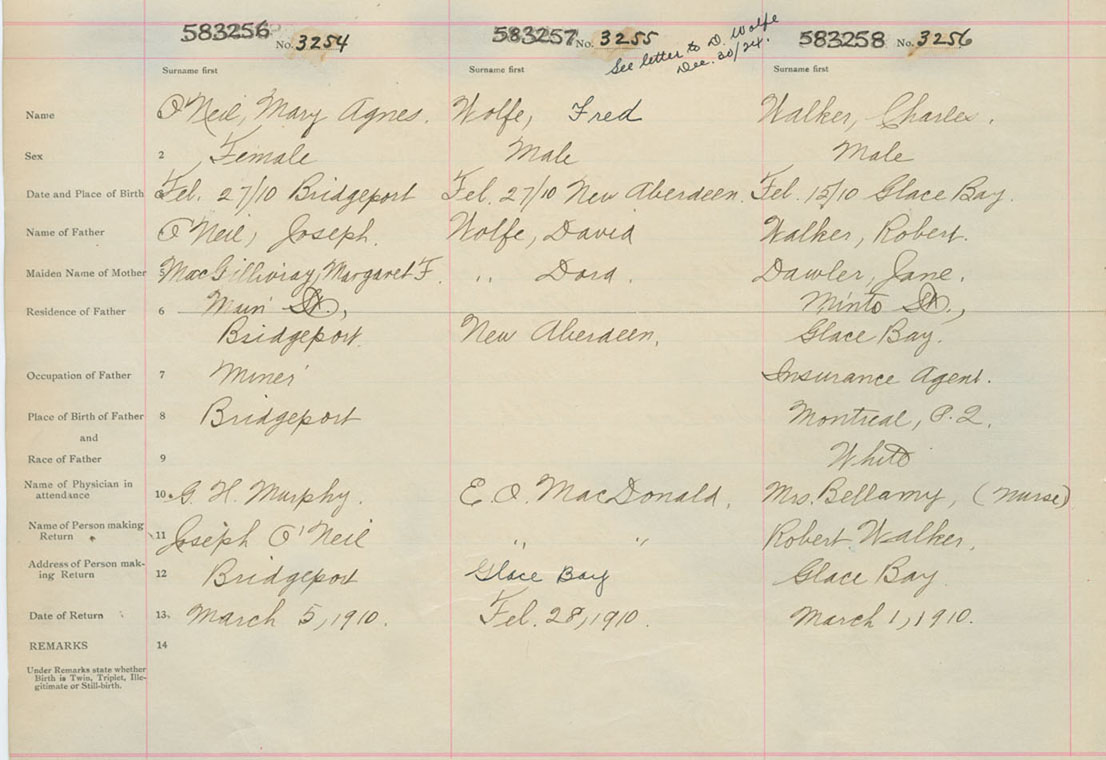 583256 No. 3254 583257 No. 3255 See letter to D. Wolfe 583258 No. 3256
Dec. 30/24.
Surname first Surname first Surname first
Name O'Neil, Mary Agnes. Wolfe, Fred Walker, Charles.
Sex 2 Female Male Male
Date and Place of Birth Feb. 27/10 Bridgeport Feb. 27/10 New Aberdeen. Feb. 15/10 Glace Bay.
Name of Father O'Neil, Joseph. Wolfe, David Walker, Robert.
Maiden Name of Mother 5 MacGillivray, Margaret F. " Dora. Dawler, Jane.
Residence of Father 6 Main St., Minto St.,
Bridgeport. New Aberdeen. Glace Bay.
Occupation of Father 7 Miner Insurance Agent.
Place of Birth of Father 8 Bridgeport Montreal, P.Q.
and
Race of Father 9 White
Name of Physician in
attendance 10 G. H. Murphy. E. O. MacDonald. Mrs. Bellamy, (nurse)
Name of Person making
Return 11 Joseph O'Neil " " Robert Walker.
Address of Person mak-
ing Return 12 Bridgeport Glace Bay Glace Bay.
Date of Return 13 March 5, 1910. Feb. 28, 1910. March 1, 1910.
REMARKS 14
Under Remarks state whether
Birth is Twin, Triplet, Ille-
gitimate or Still-birth.